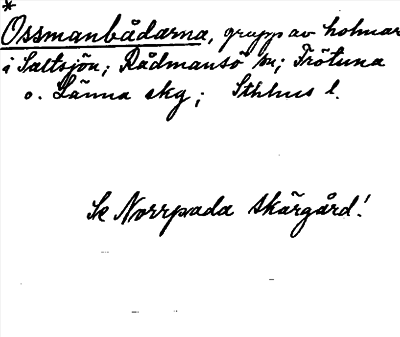 *
Ossmanbådarna, grupp av holmar
i Saltsjön; Rådmansö sn; Frötuna
o. Länna skg; Sthlms l.
Se Norrpada skärgård!